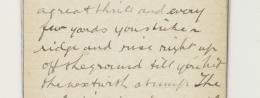 a great thrill and every
few yards you strike a
ridge and rise right up
off the ground till you hit
the next with a bump. The